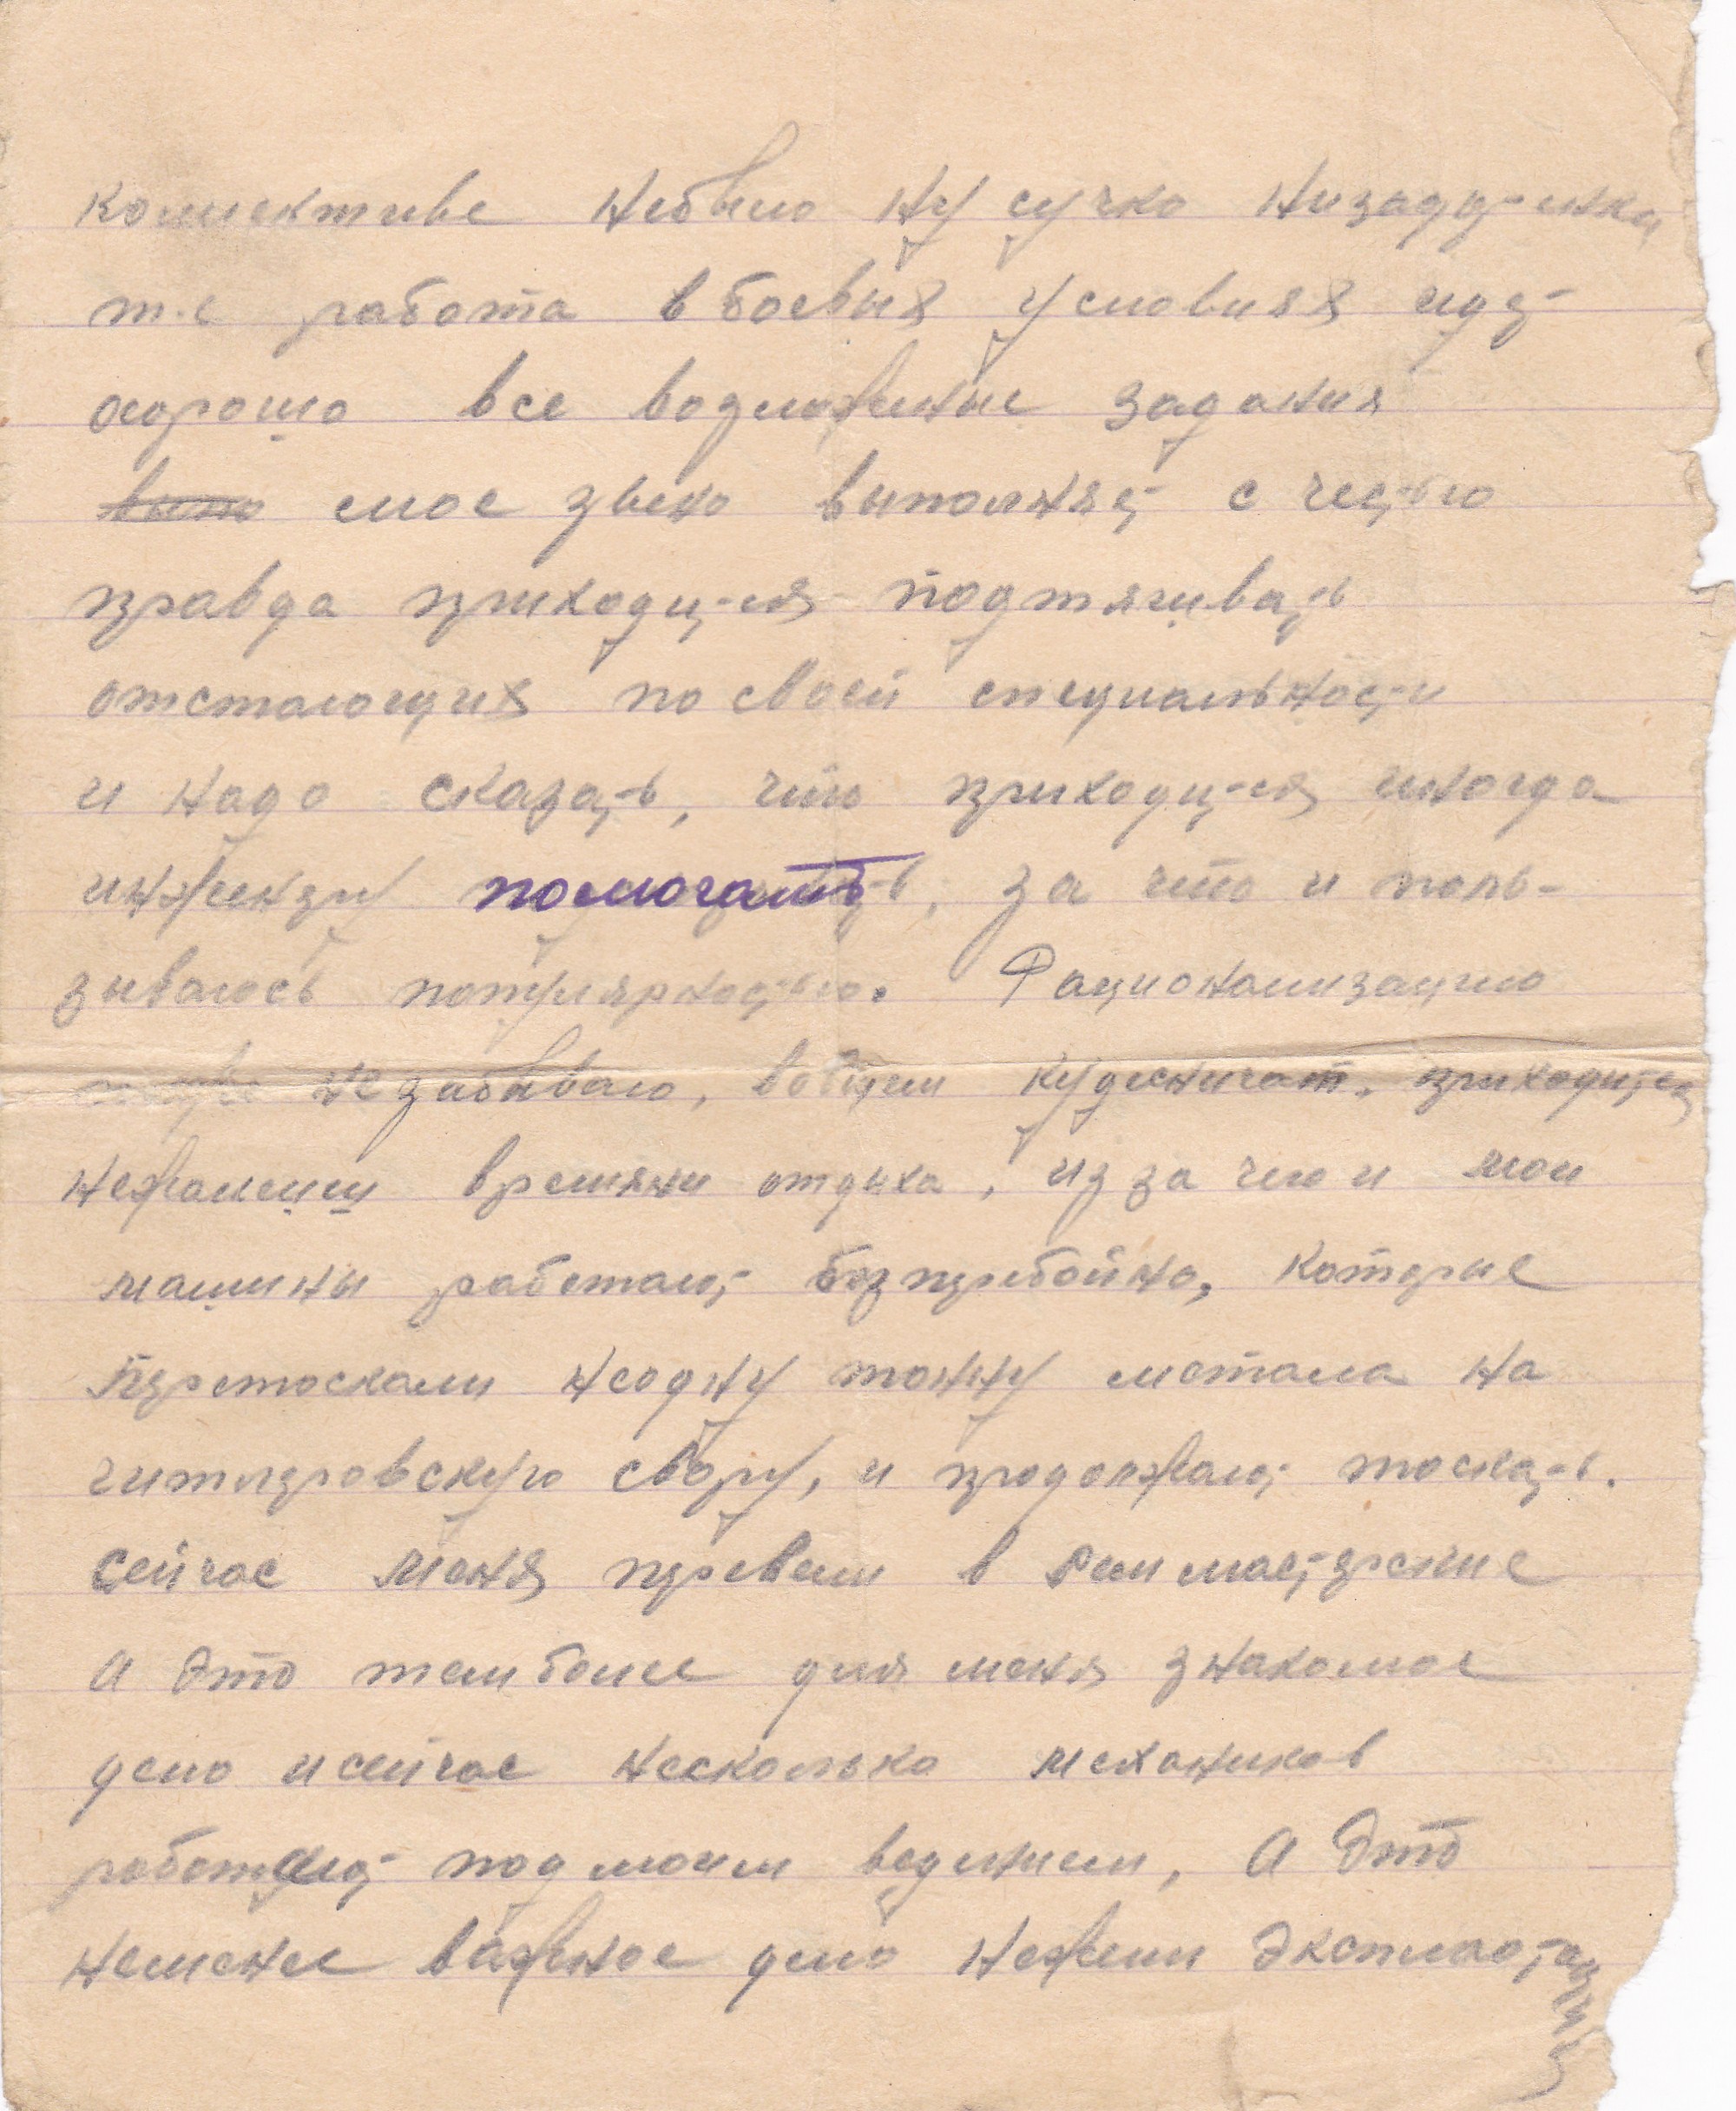 коллективе небыло ну сучка низадоринки
т.е работа в боевых условиях идет
хорошо все возможные задания
мое звено выполняет с честью
правда приходится подтягивать
отстающих по своей специальности
и надо сказать, что приходится иногда
инженеру помогать, за что и поль-
зываюсь популярностью. Рационализацию
незабываю, вобщем кудесничат. приходится
нежалеищи времяни отдыха, из за чего и мои
машины работают безперебойно, которые
Перетоскали неодну тонну метала на
гитлеровскую свору, и продолжают тоскать.
Сейчас меня перевели в Рем мастерские
А Это темболее для меня знакомое
дело исейчас несколько механиков
работают под моим ведением, А Это
неменее важное дело нежели Эксплоотации